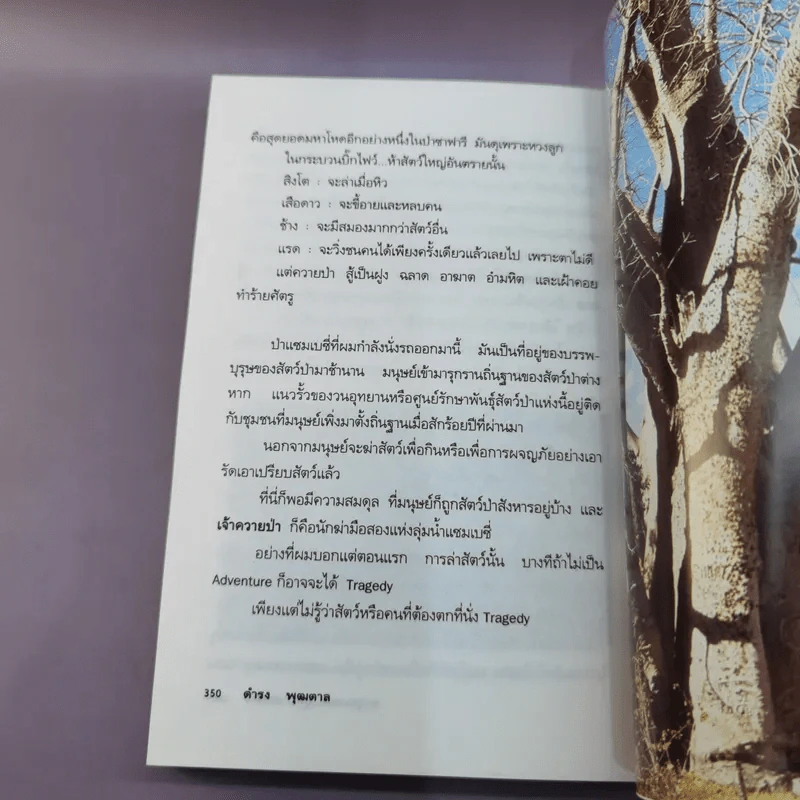 คือสุดยอดมหาโหดอีกอย่างหนึ่งในป่าซาฟารี มันดุเพราะหวงลูก
ในกระบวนบิ๊กไฟว์...ห้าสัตว์ใหญ่อันตรายนั้น
สิงโต : จะล่าเมื่อหิว
เสือดาว : จะขี้อายและหลบคน
ช้าง : จะมีสมองมากกว่าสัตว์อื่น
แรด : จะวิ่งชนคนได้เพียงครั้งเดียวแล้วเลยไป เพราะตาไม่ดี
แต่ควายป่า สู้เป็นฝูง ฉลาด อาฆาต อำมหิต และเฝ้าคอย
ทำร้ายศัตรู
ป่าแซมเบซี่ที่ผมกำลังนั่งรถออกมานี้ มันเป็นที่อยู่ของบรรพ-
บุรุษของสัตว์ป่ามาช้านาน มนุษย์เข้ามารุกรานถิ่นฐานของสัตว์ป่าต่าง
หาก แนวรั้วของวนอุทยานหรือศูนย์รักษาพันธุ์สัตว์ป่าแห่งนี้อยู่ติด
กับชุมชนที่มนุษย์เพิ่งมาตั้งถิ่นฐานเมื่อสักร้อยปีที่ผ่านมา
นอกจากมนุษย์จะฆ่าสัตว์เพื่อกินหรือเพื่อการผจญภัยอย่างเอา
รัดเอาเปรียบสัตว์แล้ว
ที่นี่ก็พอมีความสมดุล ที่มนุษย์ก็ถูกสัตว์ป่าสังหารอยู่บ้าง และ
เจ้าควายป่า ก็คือนักฆ่ามือสองแห่งลุ่มน้ำแซมเบซี่
อย่างที่ผมบอกแต่ตอนแรก การล่าสัตว์นั้น บางทีถ้าไม่เป็น
Adventure ก็อาจจะได้ Tragedy
เพียงแต่ไม่รู้ว่าสัตว์หรือคนที่ต้องตกที่นั่ง Tragedy
350 ดำรง พุฒตาล